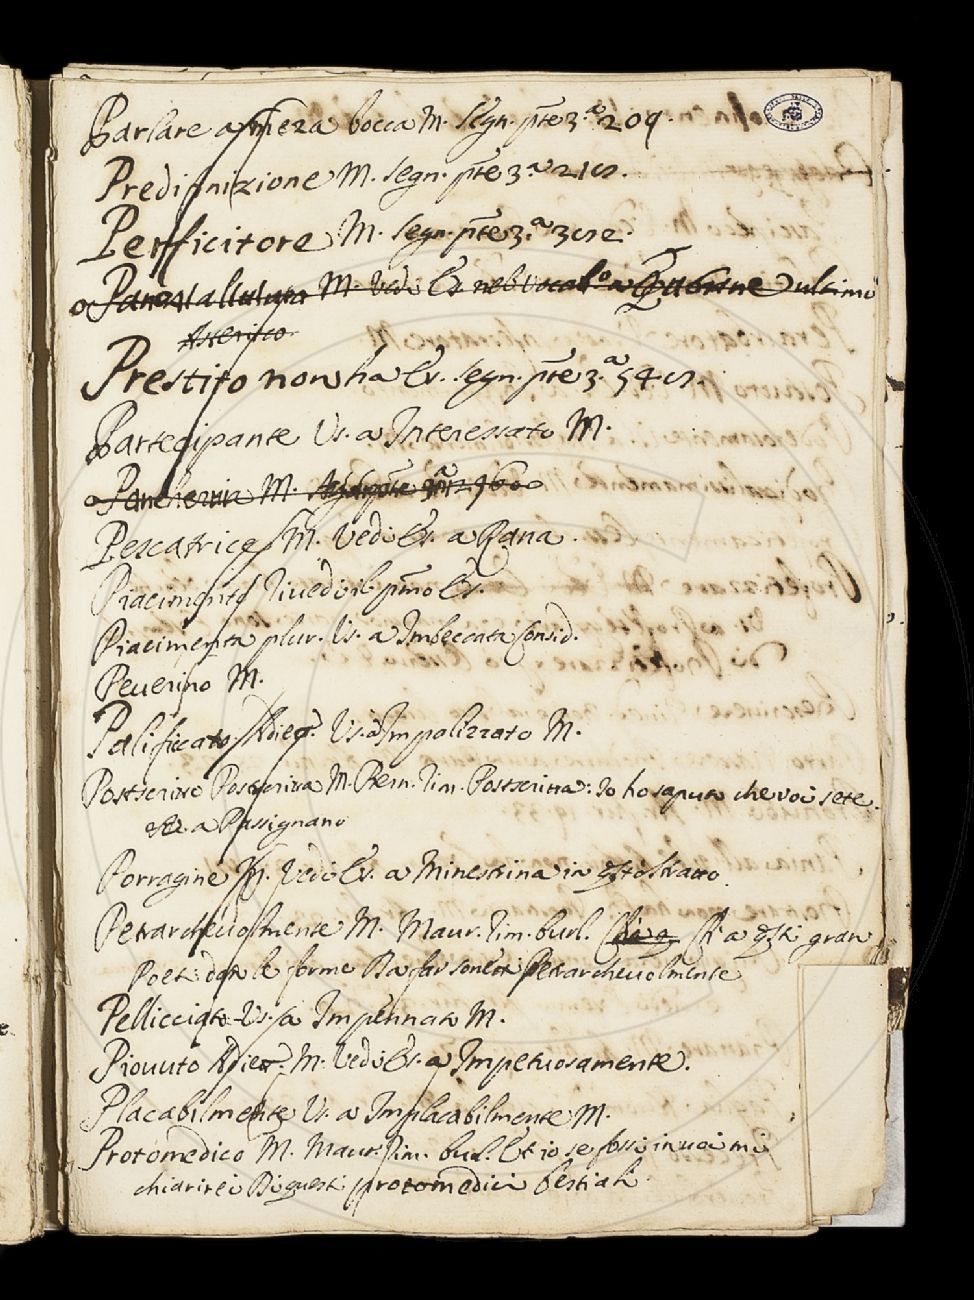 Parlare a meza bocca M. Segn. pte 3.a 209.
Predifinizione M. segn. pte 3.a
Perficitore M. segn. pte 3.a
M. Vedi Es. nel vocab.o a ultimo
Asterisco
Prestito non ha Es. segn. pte 3.a 54
Partecipante Vs. a Interessato M.
M.
Pescatrice M. Vedi Es. a Rana.
Piacimento Rivedi il pmo Es.
Piacimenta plur. Vs. a Imbeccata
Peverino M.
Palificato Adiet. Vs. a Impalizzato M.
Postscritto Postscritta M. Rim. Postscritta: Io ho saputo che voi sete
a Passignano
Porragine M. Vedi Es. a Minestrina in
Petrarchevolmente M. Maur. Rim. burl. a gran
Poeti dan le forme Da far sonetti Petrarchevolmente
Pellicciato Vs. a Impennato M.
Piovuto Adiet. M. Vedi Es. a Impetuosamente.
Placabilmente Vs. a Implacabilmente M.
Protomedico M. Maur. Rim. burl. Et io se fossi in voi mi
chiarirei Di questi protomedici bestiali.